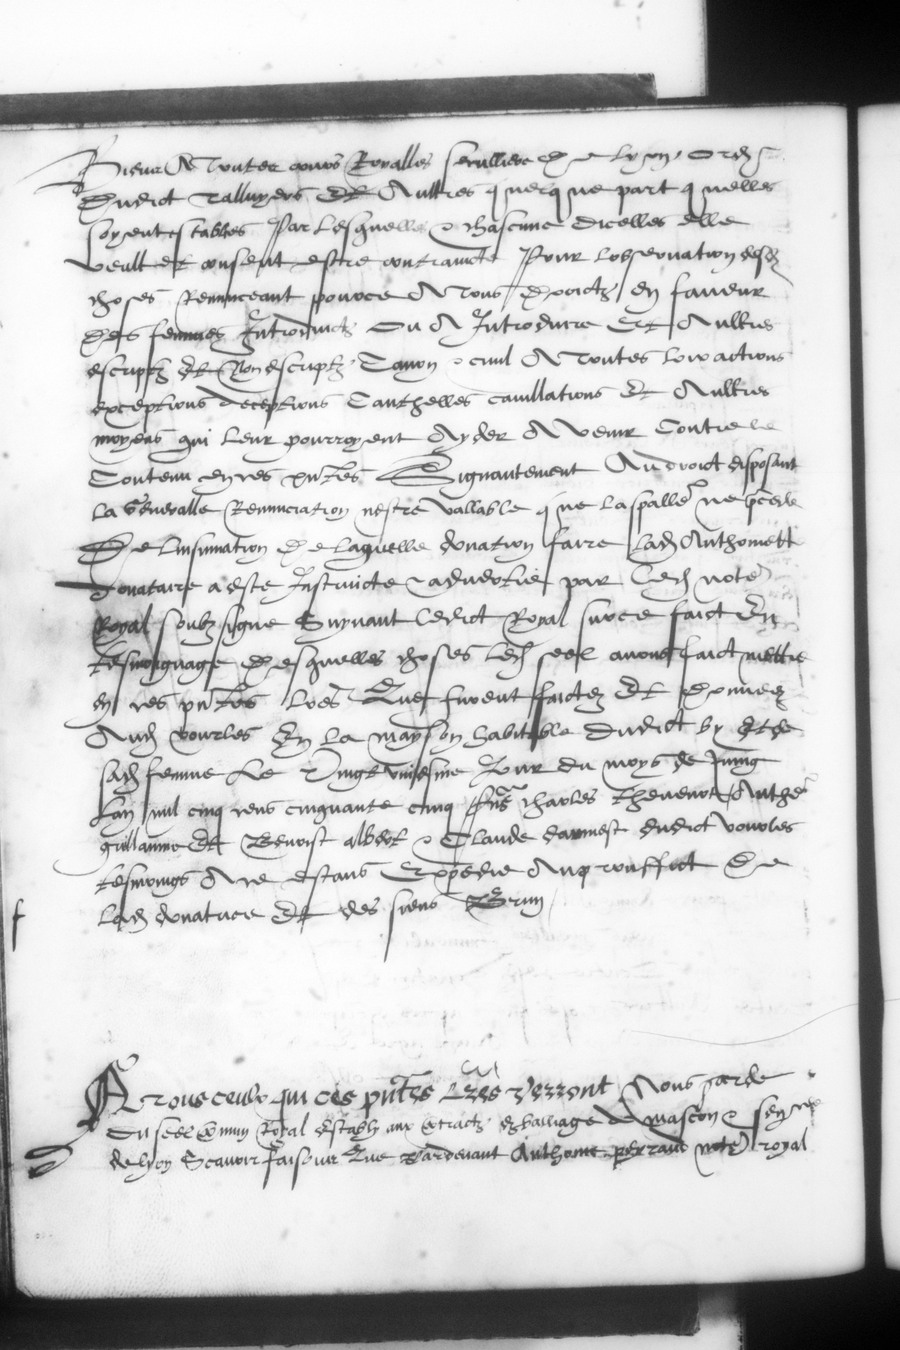 A toutes cours Royalles seculliere de Lyon
dudict et Aultres quelque part quelles
soyent establies Par Lesquelles et chascune dicelles elle
veult et consent estre contraincte Pour lobservation desd
choses Renunceant pource A tous droictz en faveur
des femmes Introduictz Ou A Introduire Et Aultres
escriptz Et Non escriptz Canon et civil A toutes actions
exceptions deceptions Cauthelles cauillations Et Aultres
moyens qui Leur pourroyent Ayder A venir Contre le
Contenu en ces pntes Signantement Au droict disposant
La Generalle Renunciation nestre vallable que La spalle ne precede
De Linsinuation De Laquelle donation faire Lad Anthoinette
donataire a este Instruicte et aduertie par Led note
Royal soubzsigne Suyuant Ledict Royal surce faict En
tesmoignage Desquelles choses Led seel auons faict mettre
En ces pntes Que furent faictez Et Donnees
Aud vourles En La mayson habitable dudict by Et de
sad femme Le vingt uniesme Jour du moys de Juing
Lan mil cinq cens cinquante cinq pns charles thevenot Anthe
guillaume Et Benoist albert et Claude dudict vourles
tesmoings A ce estans Expedie Au prouffict De
Lad donatrice Et des siens Brun
A tous ceulx qui ces pntes Lres Verront Nous garde
du seel comun Royal estably aux contractz de mascon et
de lyon Scauoir faisons Que Pardeuant Anthoine perraud note royal